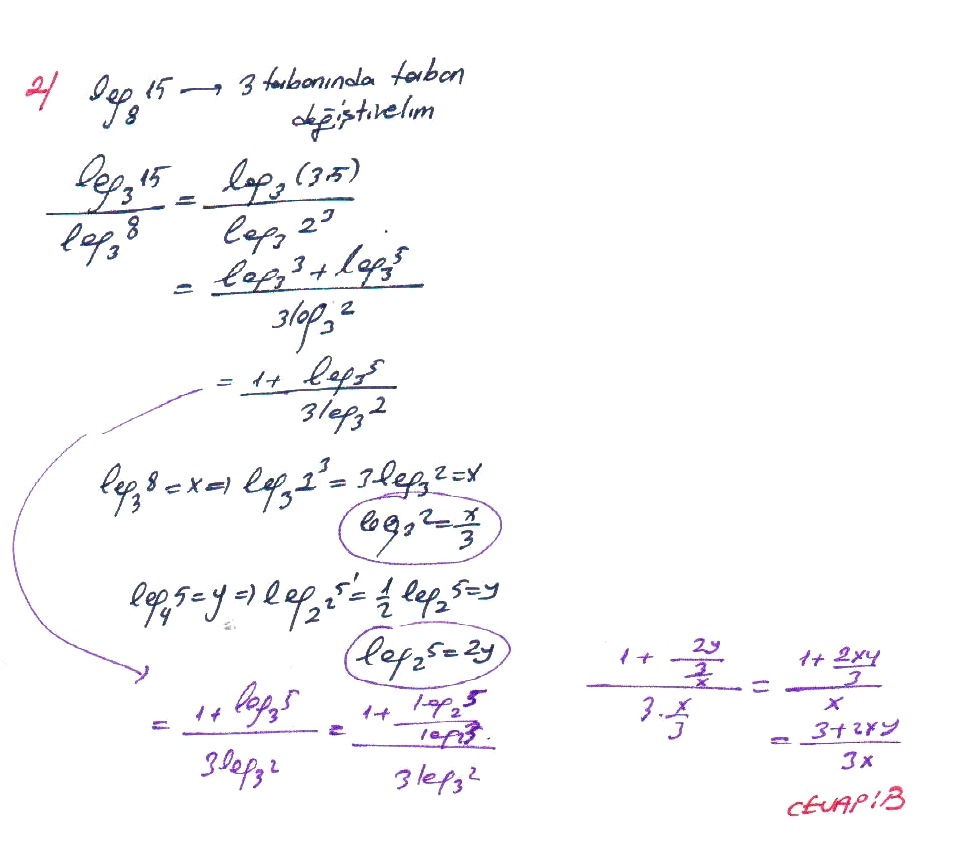 2/ log₈15 → 3 tabanında taban
değiştirelim
log₃15 / log₃8 = log₃(3.5) / log₃2³
= (log₃3 + log₃5) / 3log₃2
= (1 + log₃5) / 3log₃2
log₃8 = x ⇒ log₃2³ = 3log₃2 = x
log₃2 = x/3
log₄5 = y ⇒ log₂²5¹ = 1/2 log₂5 = y
log₂5 = 2y
= (1 + log₃5) / 3log₃2 = (1 + log₂5 / log₂3) / 3log₃2
(1 + 2y / (3/x)) / (3.x/3) = (1 + 2xy/3) / x
= (3 + 2xy) / 3x
CEVAP: B